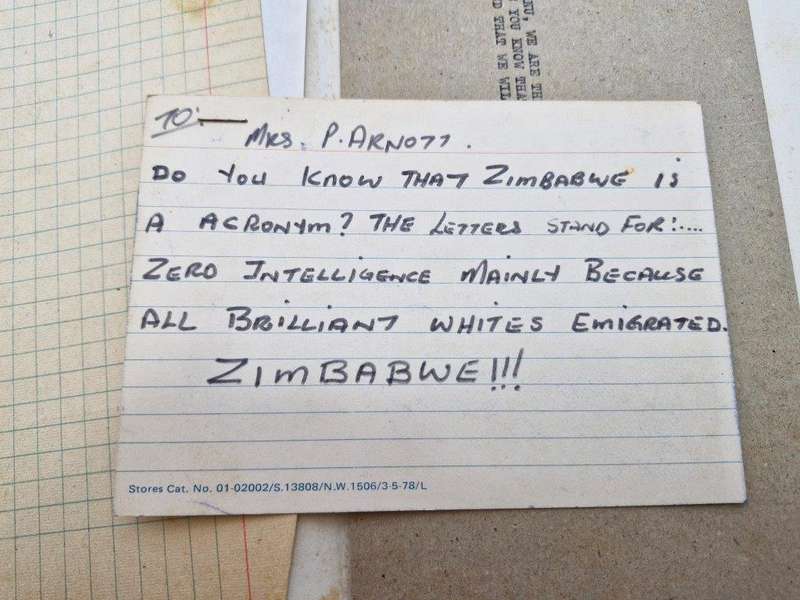 TO:—
MRS. P. ARNOTT.
DO YOU KNOW THAT ZIMBABWE IS
A ACRONYM? THE LETTERS STAND FOR:....
ZERO INTELLIGENCE MAINLY BECAUSE
ALL BRILLIANT WHITES EMIGRATED.
ZIMBABWE!!!
Stores Cat. No. 01-02002/S.13808/N.W.1506/3-5-78/L
WE ARE TH
YOU KNOW THA
THAT WE WIL